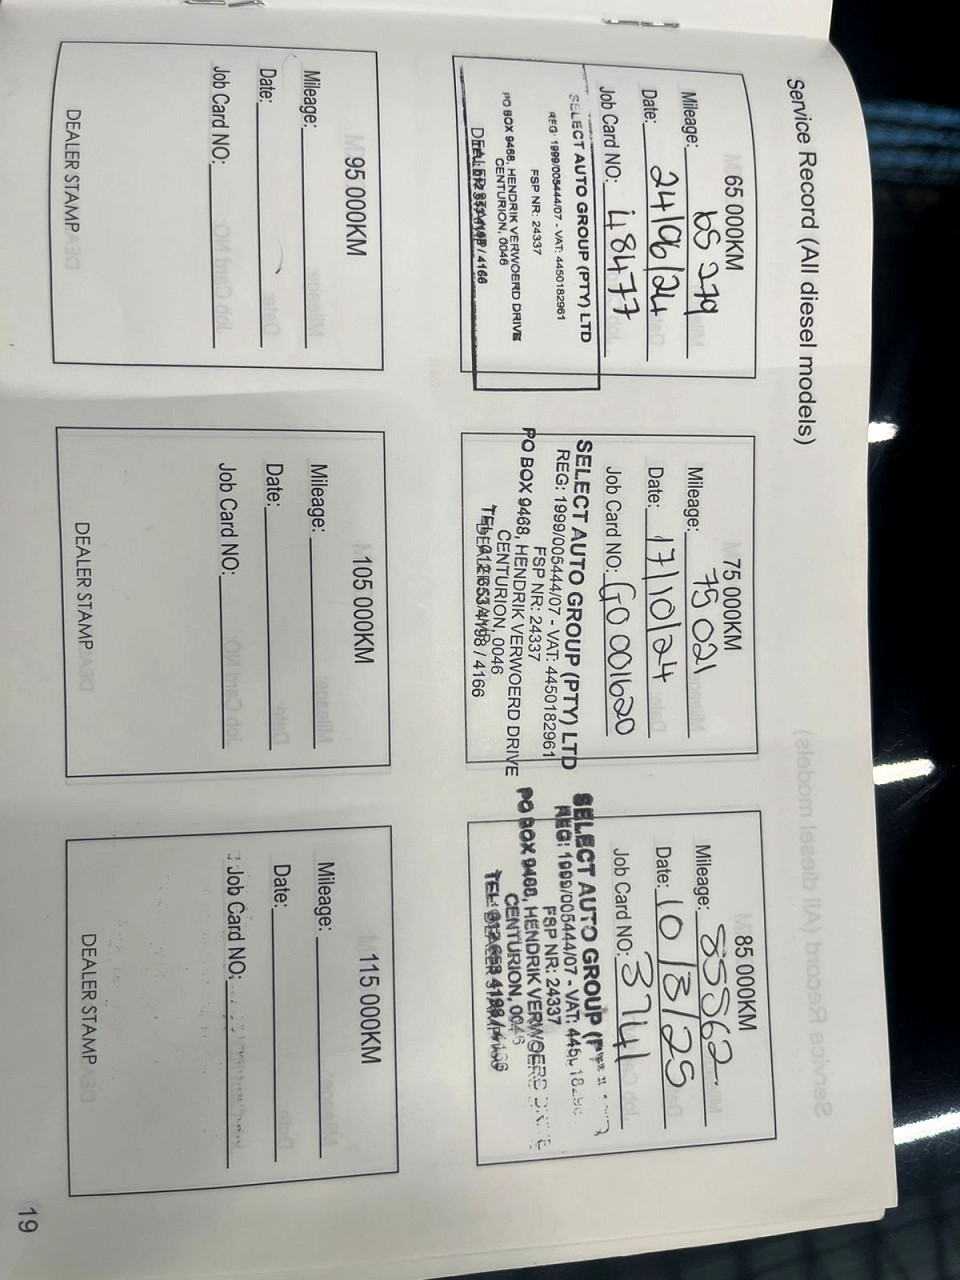 Service Record (All diesel models)
65 000KM
Mileage: 65 279
Date: 24/06/24
Job Card NO: 48477
SELECT AUTO GROUP (PTY) LTD
REG: 1999/005444/07 - VAT: 4450182961
FSP NR: 24337
PO BOX 9468, HENDRIK VERWOERD DRIVE
CENTURION, 0046
75 000KM
Mileage: 75 021
Date: 17/10/24
Job Card NO: GO 001620
SELECT AUTO GROUP (PTY) LTD
REG: 1999/005444/07 - VAT: 4450182961
FSP NR: 24337
PO BOX 9468, HENDRIK VERWOERD DRIVE
CENTURION, 0046
TEL: 012 653 4198 / 4166
85 000KM
Mileage: 85562
Date: 10/3/25
Job Card NO: 3741
SELECT AUTO GROUP
REG: 1999/005444/07 - VAT:
FSP NR: 24337
PO BOX 9468, HENDRIK VERWOERD DRIVE
CENTURION, 0046
95 000KM
Mileage:
Date:
Job Card NO:
DEALER STAMP
105 000KM
Mileage:
Date:
Job Card NO:
DEALER STAMP
115 000KM
Mileage:
Date:
Job Card NO:
DEALER STAMP
19